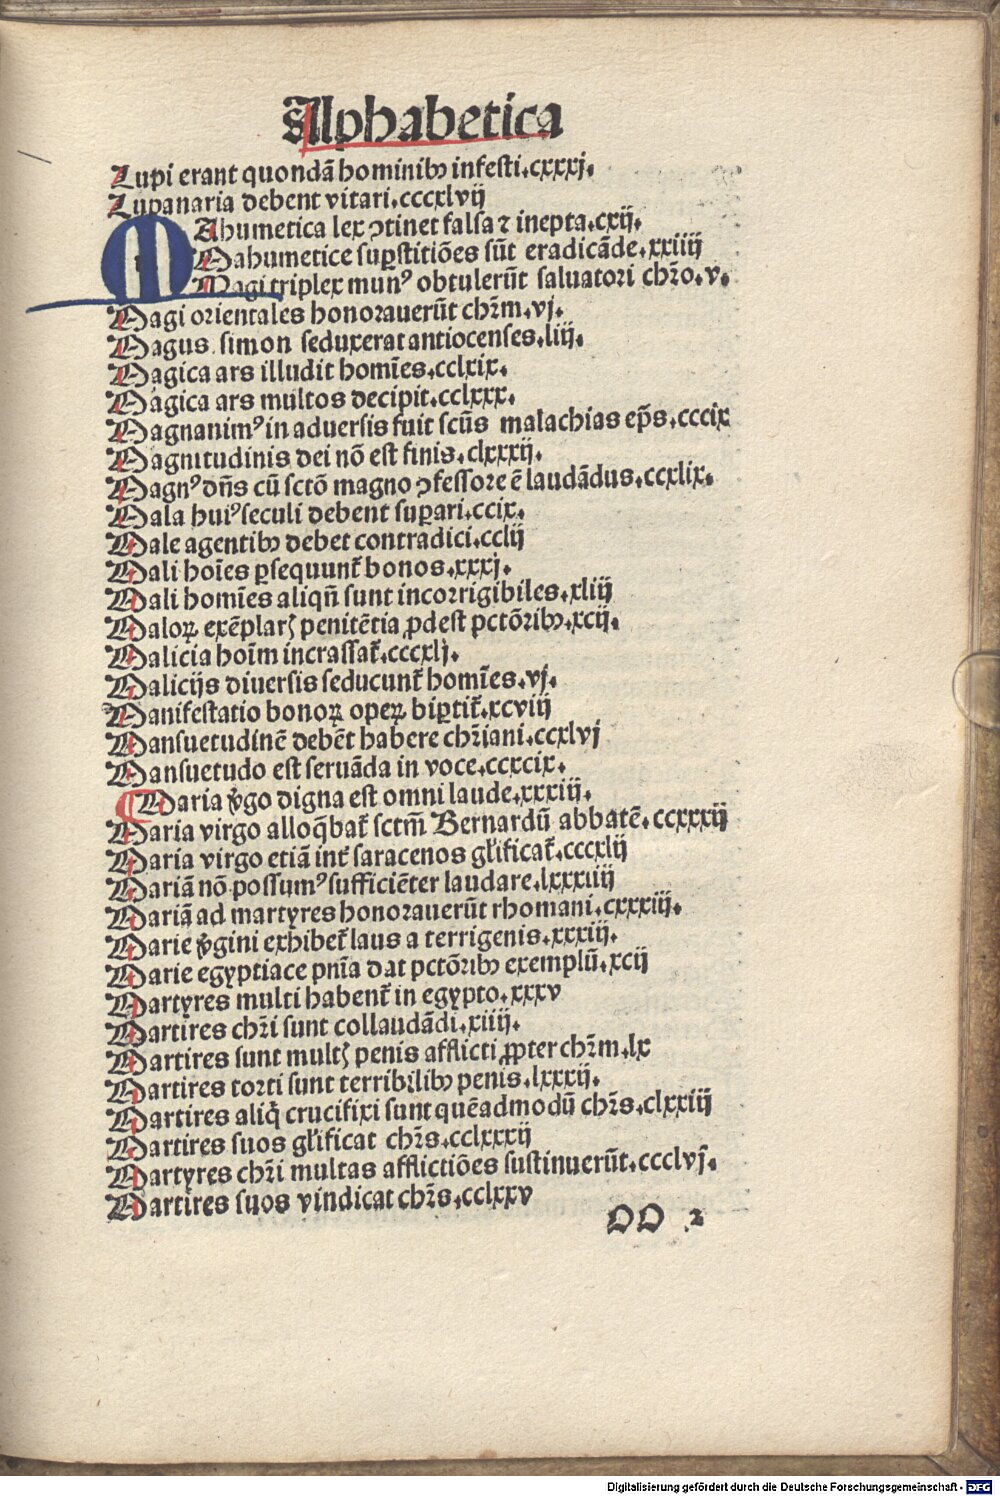 Alphabetica
Lupi erant quondā hominibꝫ infesti.cxxxj.
Lupanaria debent vitari.cccxlvij
MAhumetica lex ꝯtinet falsa ⁊ inepta.cxij.
Mahumetice suꝑstitiōes sūt eradicāde.xxiiij
Magi triplex munꝰ obtulerūt saluatori chr̄o.v.
Magi orientales honorauerūt chr̄m.vj.
Magus simon seduxerat antiocenses.liij.
Magica ars illudit homīes.cclxix.
Magica ars multos decipit.cclxxx.
Magnanimꝰ in aduersis fuit scūs malachias ep̄s.cccix
Magnitudinis dei nō est finis.clxxxij.
Magnꝰ dn̄s cū sctō magno ꝯfessore ē laudādus.ccxlix.
Mala huiꝰ seculi debent suꝑari.ccix.
Male agentibꝫ debet contradici.cclij
Mali hoīes ꝑsequunt᷑ bonos.xxxj.
Mali homīes aliqn̄ sunt incorrigibiles.xliij
Maloꝝ exēplarꝭ penitētia ꝓdest pctōribꝫ.xcij.
Malicia hoīm incrassat᷑.cccxlj.
Malicijs diuersis seducunt᷑ homīes.vj.
Manifestatio bonoꝝ opeꝝ biꝑtit᷑.xcviij
Mansuetudinē debēt habere chr̄iani.ccxlvj
Mansuetudo est seruāda in voce.ccxcix.
Maria v̄go digna est omni laude.xxxiij.
Maria virgo alloq̄bat᷑ sctm̄ Bernardū abbatē.ccxxxij
Maria virgo etiā int᷑ saracenos gl̄ificat᷑.cccxlij
Mariā nō possumꝰ sufficiēter laudare.lxxxiiij
Mariā ad martyres honorauerūt rhomani.cxxxiij.
Marie v̄gini exhibet᷑ laus a terrigenis.xxxiij.
Marie egyptiace pn̄ia dat pctōribꝫ exemplū.xcij
Martyres multi habent᷑ in egypto.xxxv
Martires chr̄i sunt collaudādi.xiiij.
Martires sunt multꝭ penis afflicti ꝓpter chr̄m.lx
Martires torti sunt terribilibꝫ penis.lxxxij.
Martires aliq̄ crucifixi sunt quēadmodū chr̄s.clxxiij
Martires suos gl̄ificat chr̄s.cclxxxij
Martyres chr̄i multas afflictiōes sustinuerūt.ccclvj.
Martires suos vindicat chr̄s.cclxxv
DD 2
Digitalisierung gefördert durch die Deutsche Forschungsgemeinschaft - DFG